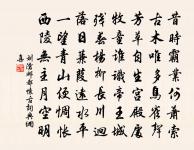 昔時霸業何蕭索
古木唯多鳥雀聲
芳草自生宮殿處
牧童誰識帝王城
殘春楊柳長川迥
落日蒹葭遠水平
一望青山便惆悵
西陵無主月空明
劉滄鄴都懷古